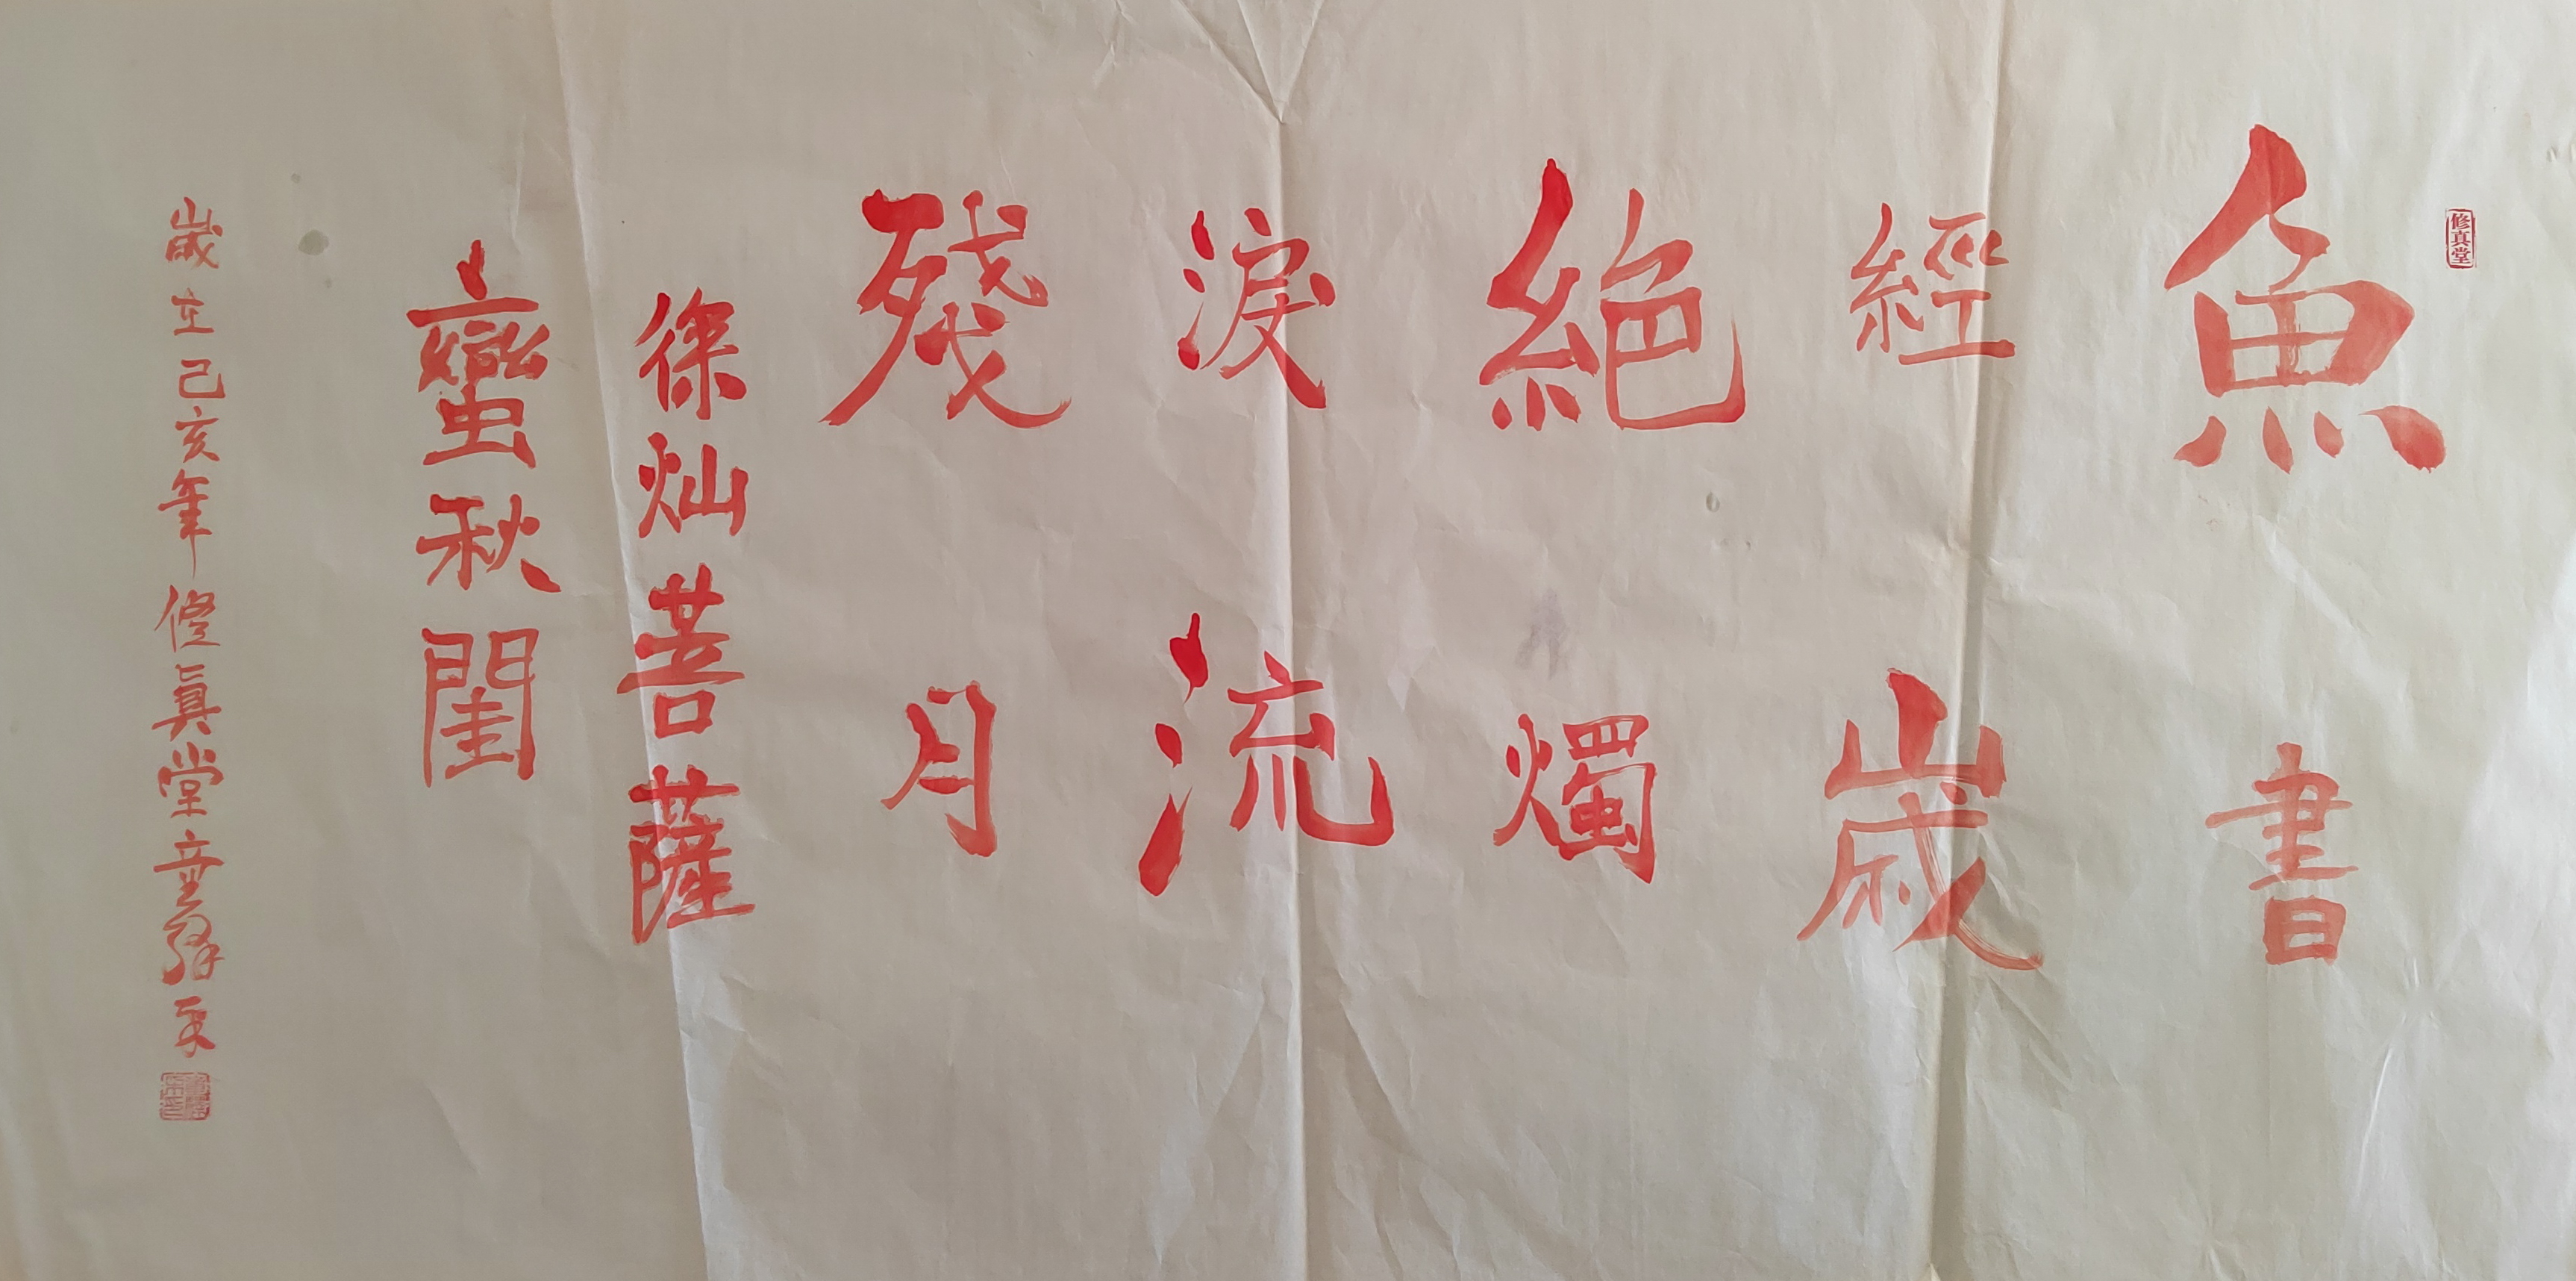 修真堂
魚書
經歲
絕燭
淚流
殘月
徐灿菩薩
蠻秋閨
歲在己亥年修真堂童